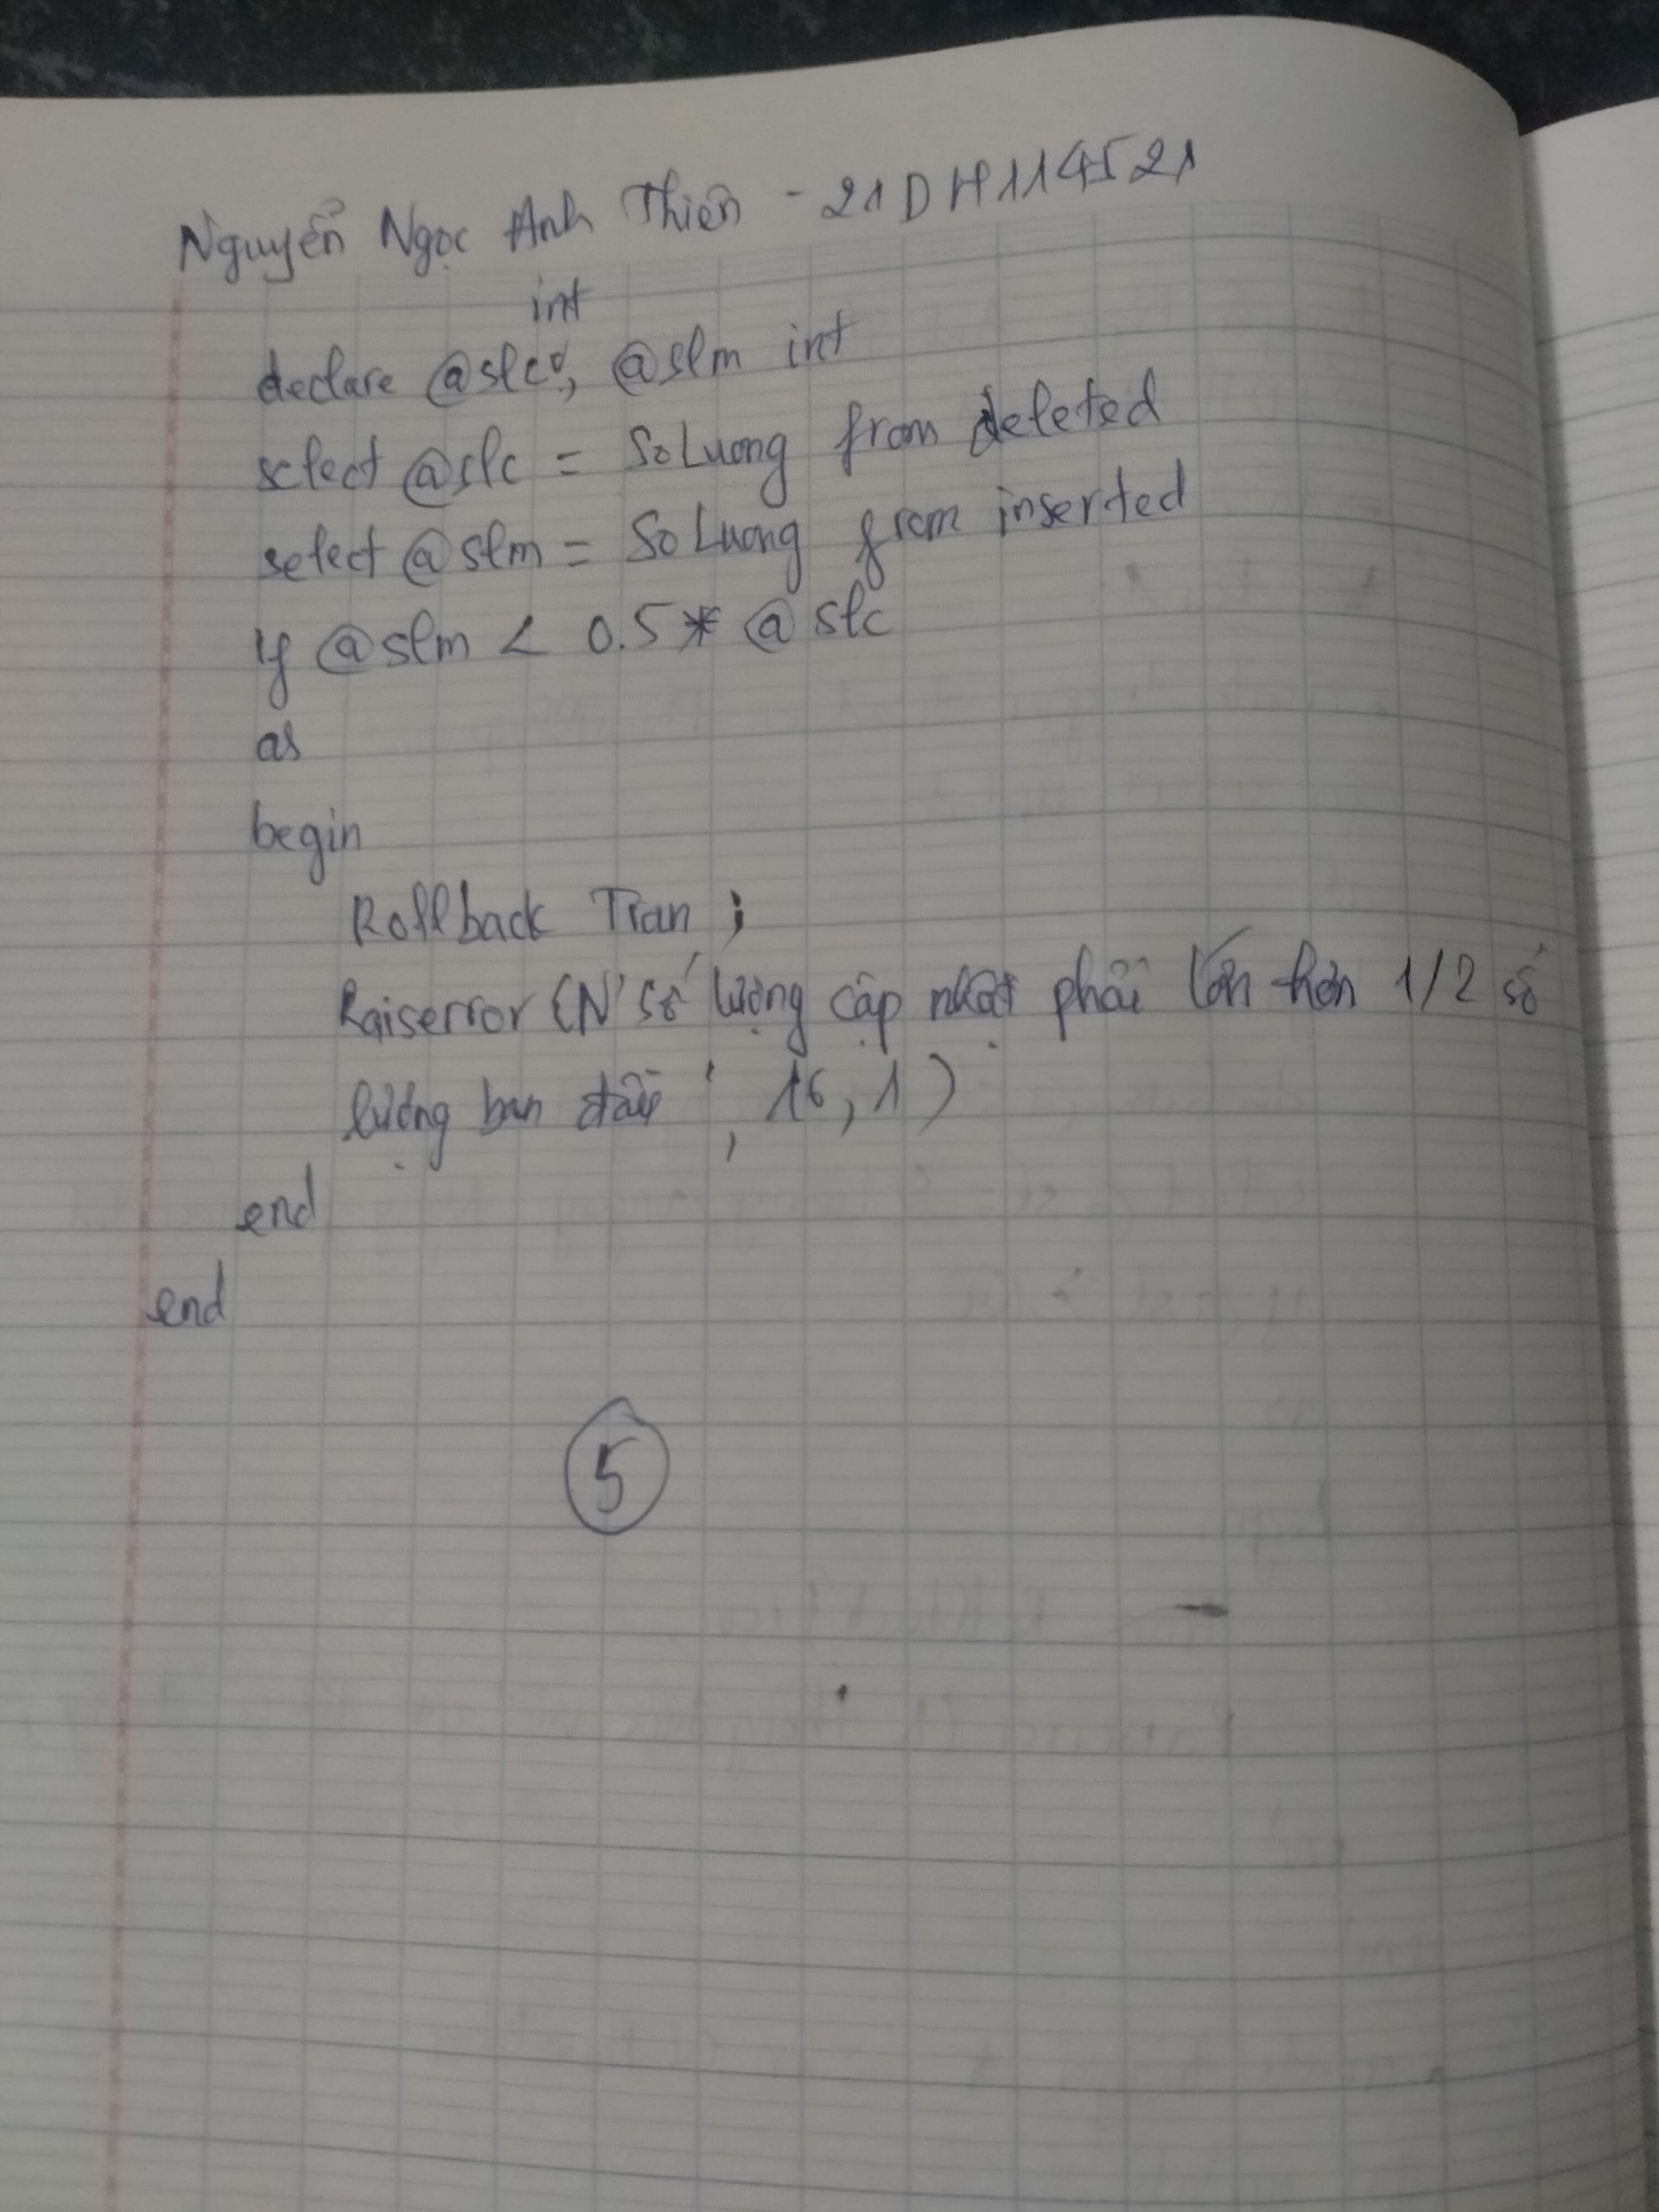 Nguyễn Ngọc Anh Thiên - 21DH114521
int
declare @slc, @slm int
select @slc = SoLuong from deleted
select @slm = SoLuong from inserted
if @slm < 0.5 * @slc
as
begin
Rollback Tran ;
Raiserror (N'số lượng cập nhật phải lớn hơn 1/2 số
lượng ban đầu ', 16, 1)
end
end
5